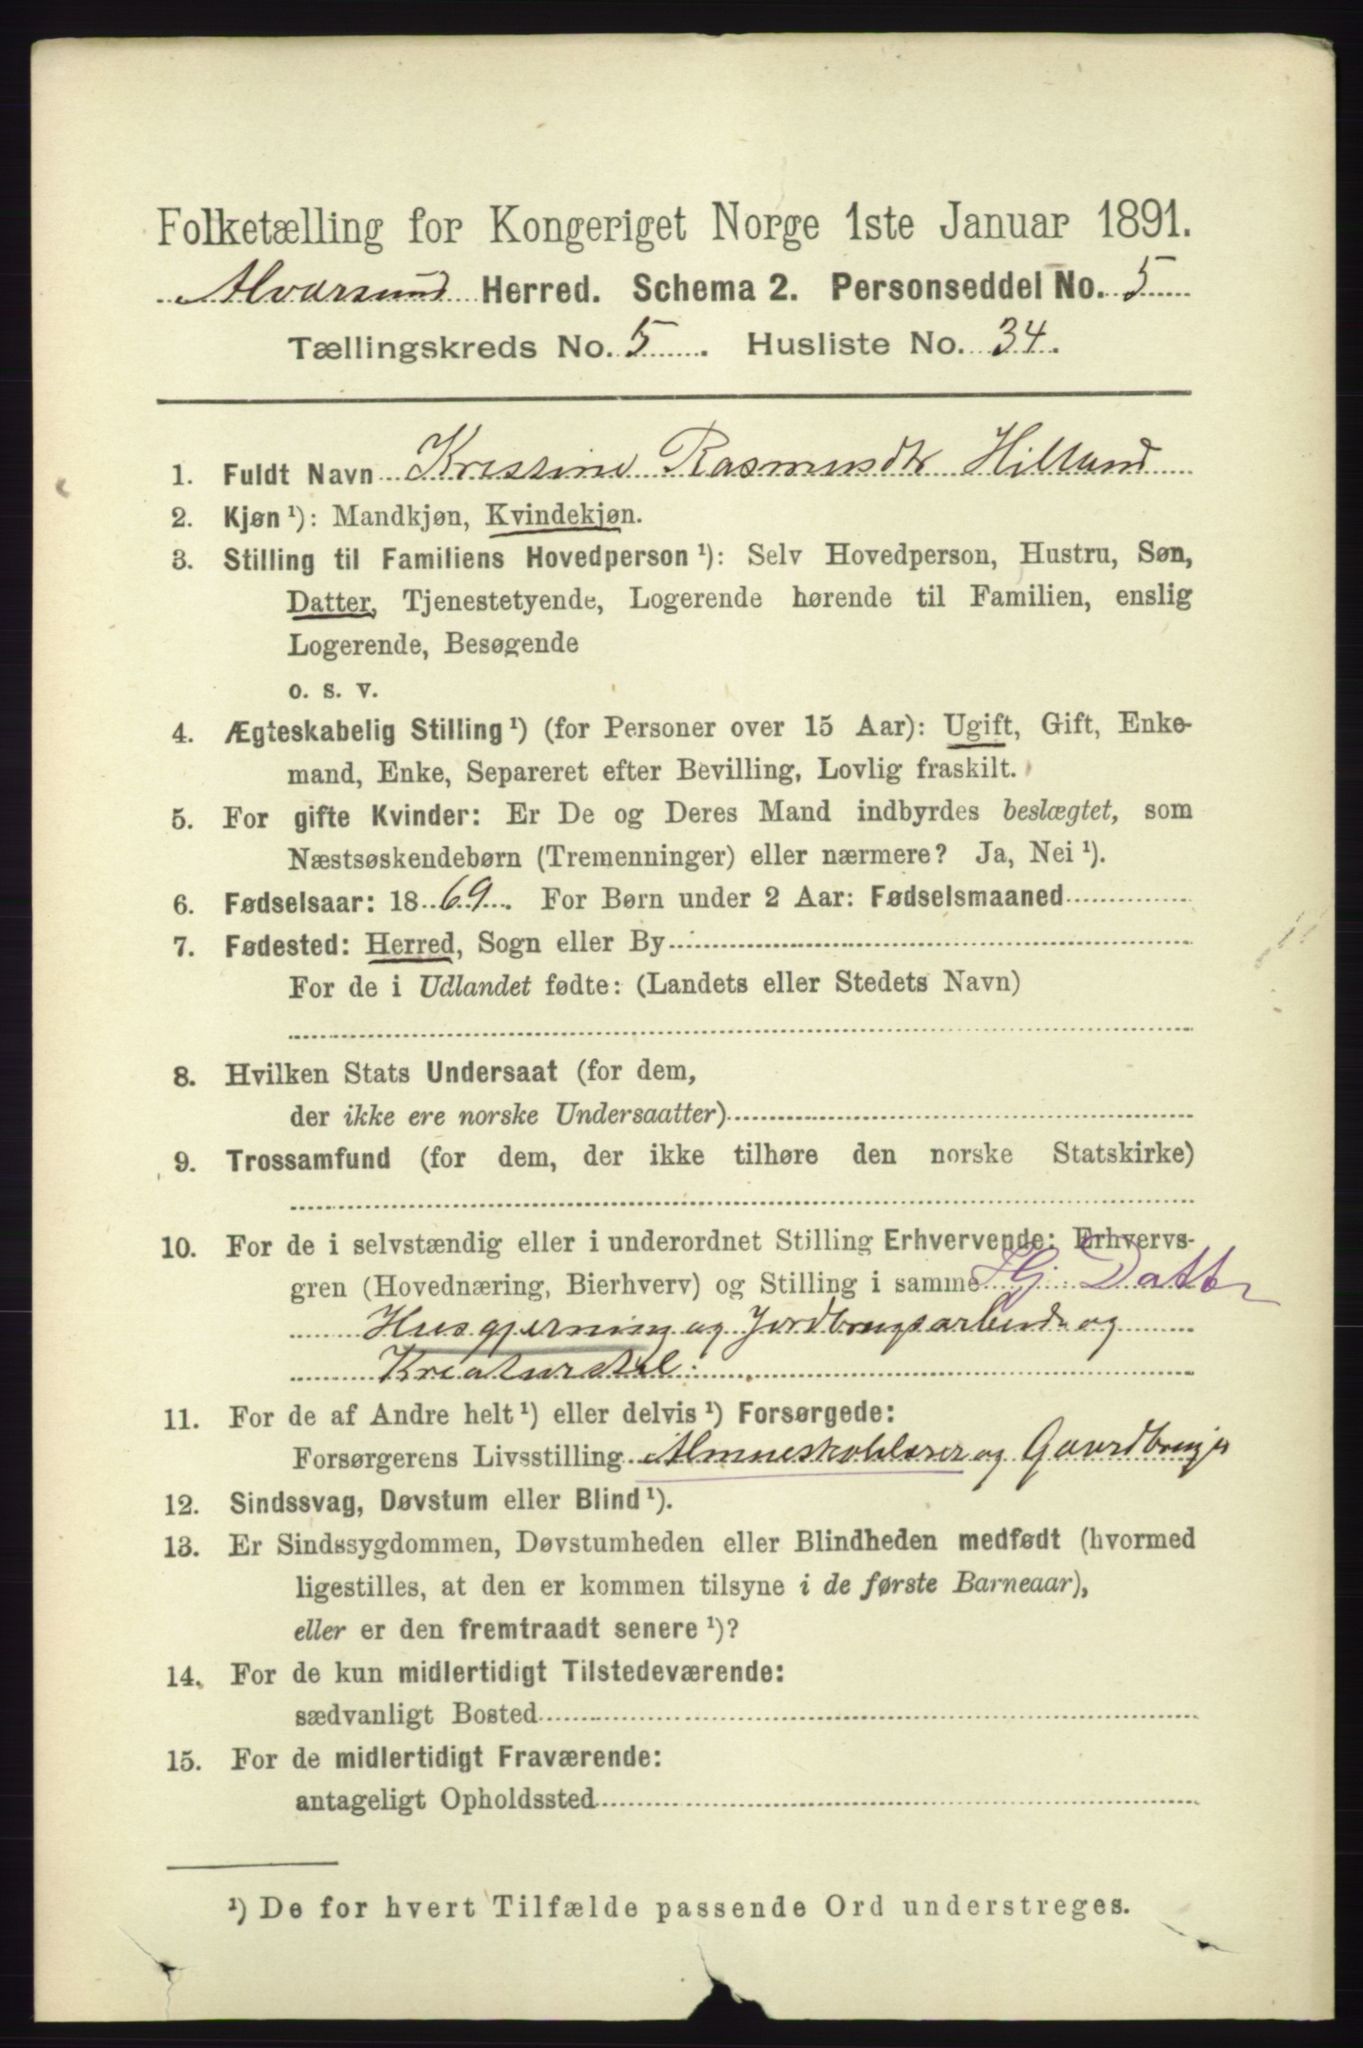 Folketælling for Kongeriget Norge 1ste Januar 1891.
Alversund Herred. Schema 2. Personseddel No. 5
Tællingskreds No. 5. Husliste No. 34.
1. Fuldt Navn Kristine Rasmusdtr Hilland
2. Kjøn ¹): Mandkjøn, Kvindekjøn.
3. Stilling til Familiens Hovedperson ¹): Selv Hovedperson, Hustru, Søn,
Datter, Tjenestetyende, Logerende hørende til Familien, enslig
Logerende, Besøgende
o. s. v.
4. Ægteskabelig Stilling ¹) (for Personer over 15 Aar): Ugift, Gift, Enke-
mand, Enke, Separeret efter Bevilling, Lovlig fraskilt.
5. For gifte Kvinder: Er De og Deres Mand indbyrdes beslægtet, som
Næstsøskendebørn (Tremenninger) eller nærmere? Ja, Nei ¹).
6. Fødselsaar: 1869. For Børn under 2 Aar: Fødselsmaaned
7. Fødested: Herred, Sogn eller By
For de i Udlandet fødte: (Landets eller Stedets Navn)
8. Hvilken Stats Undersaat (for dem,
der ikke ere norske Undersaatter)
9. Trossamfund (for dem, der ikke tilhøre den norske Statskirke)
10. For de i selvstændig eller i underordnet Stilling Erhvervende: Erhvervs-
gren (Hovednæring, Bierhverv) og Stilling i samme Hj. Datter
Husgjerning og Jordbrugsarbeide og
Kreaturstel.
11. For de af Andre helt ¹) eller delvis ¹) Forsørgede:
Forsørgerens Livsstilling Almueskolelærer og Gaardbruger
12. Sindssvag, Døvstum eller Blind ¹).
13. Er Sindssygdommen, Døvstumheden eller Blindheden medfødt (hvormed
ligestilles, at den er kommen tilsyne i de første Barneaar),
eller er den fremtraadt senere ¹)?
14. For de kun midlertidigt Tilstedeværende:
sædvanligt Bosted
15. For de midlertidigt Fraværende:
antageligt Opholdssted
¹) De for hvert Tilfælde passende Ord understreges.